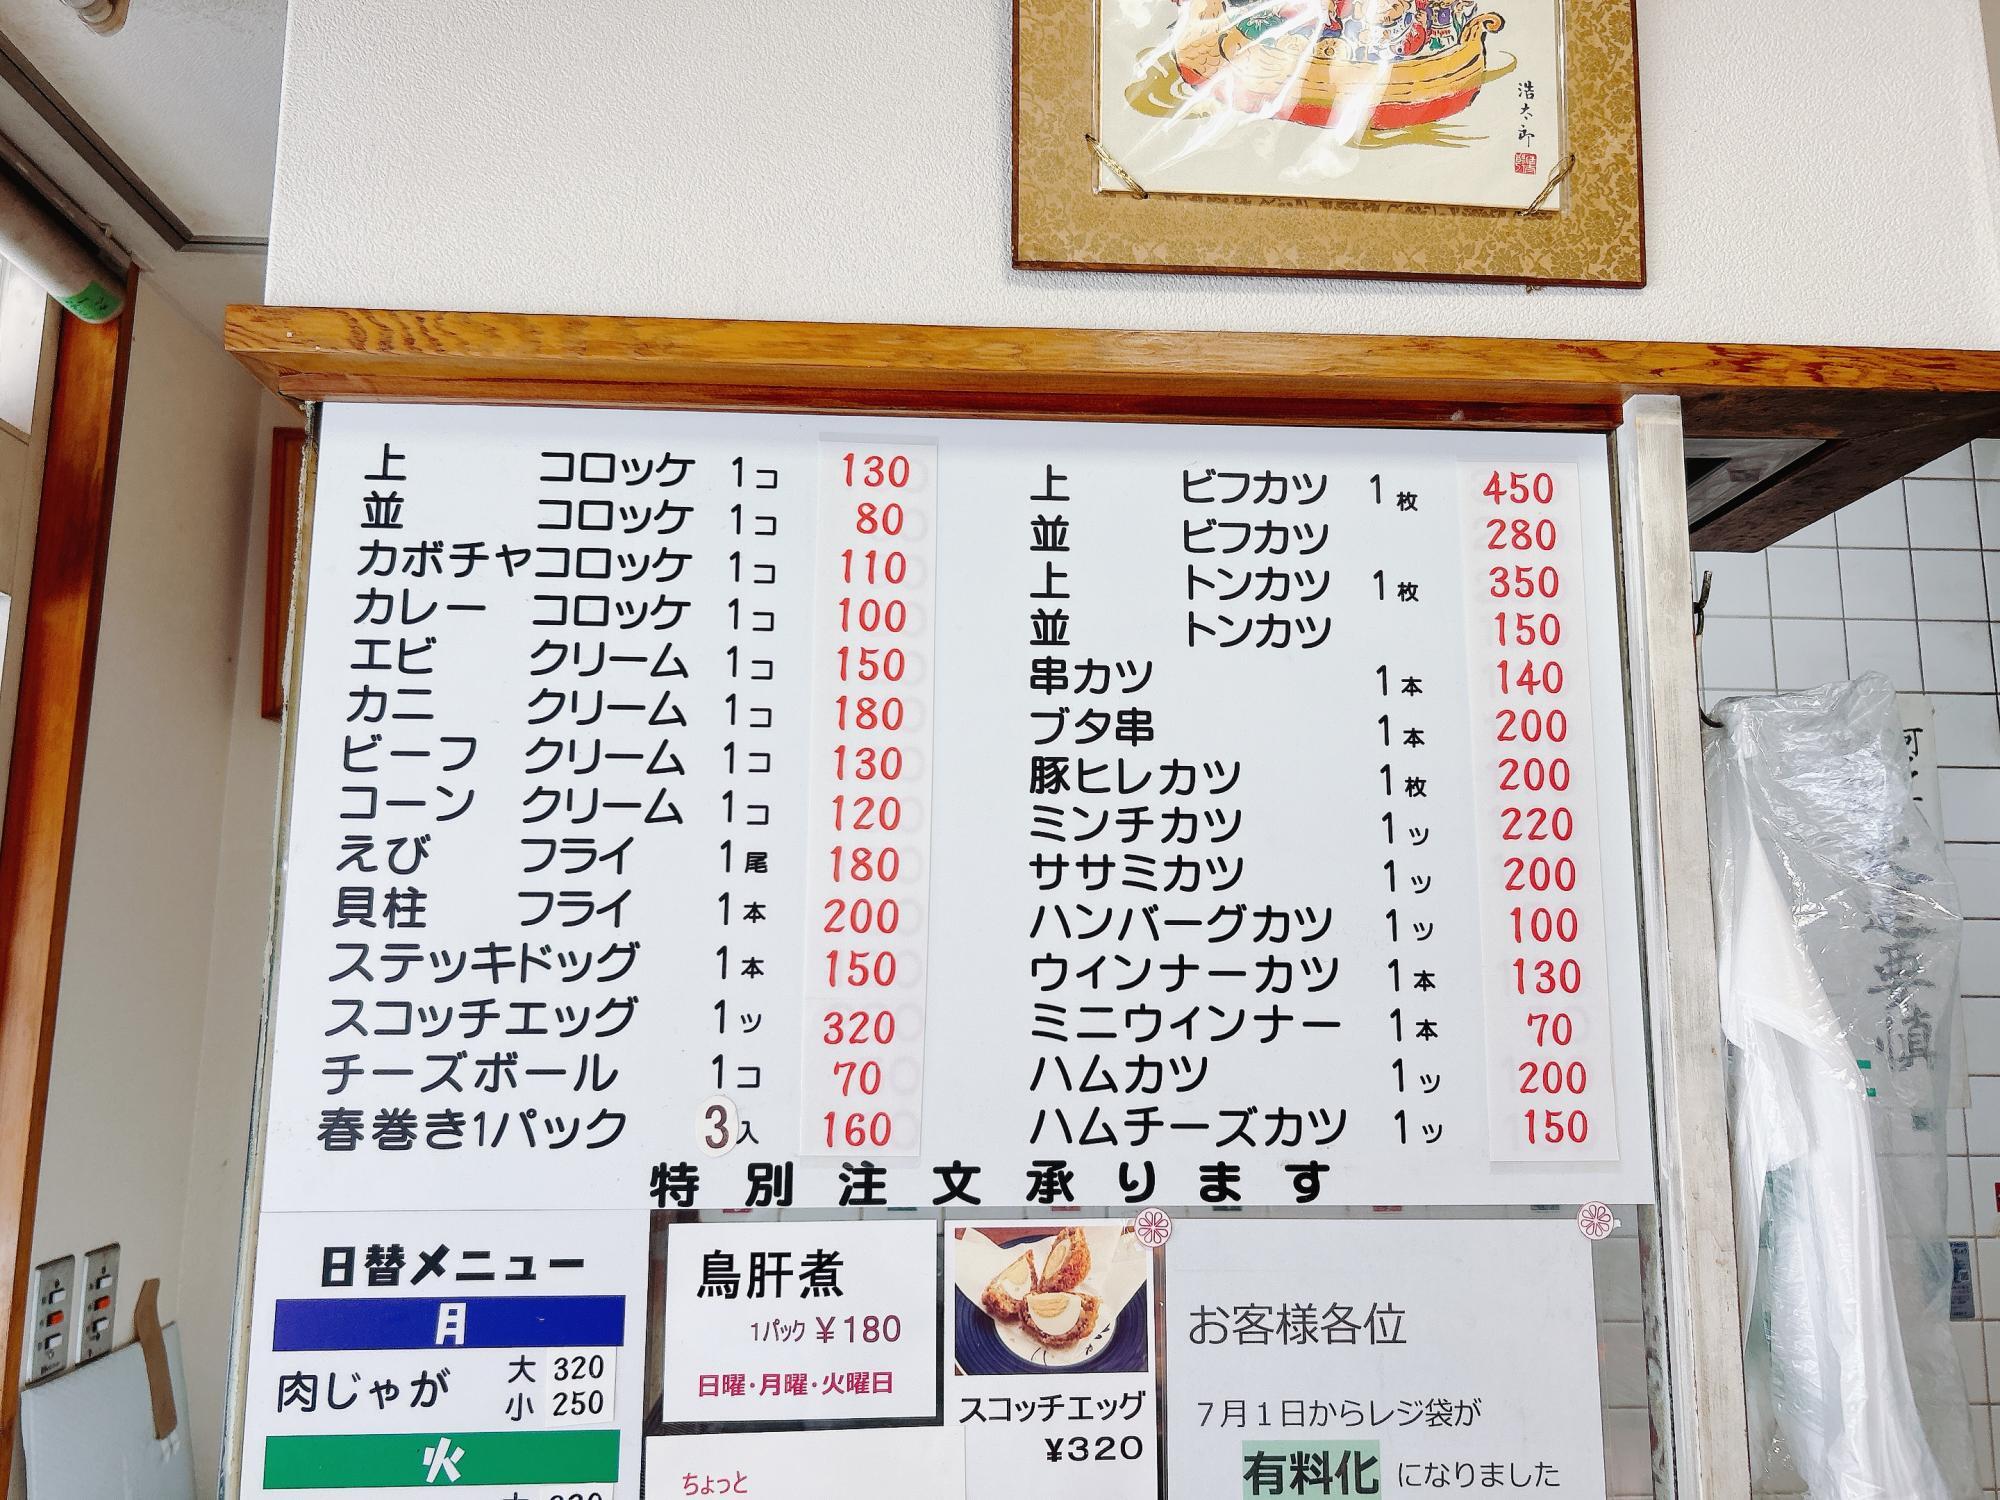 浩太郎
上 コロッケ 1コ 130
並 コロッケ 1コ 80
カボチャコロッケ 1コ 110
カレー コロッケ 1コ 100
エビ クリーム 1コ 150
カニ クリーム 1コ 180
ビーフ クリーム 1コ 130
コーン クリーム 1コ 120
えび フライ 1尾 180
貝柱 フライ 1本 200
ステッキドッグ 1本 150
スコッチエッグ 1ッ 320
チーズボール 1コ 70
春巻き1パック 3入 160
上 ビフカツ 1枚 450
並 ビフカツ 280
上 トンカツ 1枚 350
並 トンカツ 150
串カツ 1本 140
ブタ串 1本 200
豚ヒレカツ 1枚 200
ミンチカツ 1ッ 220
ササミカツ 1ッ 200
ハンバーグカツ 1ッ 100
ウインナーカツ 1本 130
ミニウインナー 1本 70
ハムカツ 1ッ 200
ハムチーズカツ 1ッ 150
特別注文承ります
日替メニュー
月
肉じゃが 大 320
小 250
火
鳥肝煮
1パック ¥180
日曜・月曜・火曜日
ちょっと
スコッチエッグ
¥320
お客様各位
7月1日からレジ袋が
有料化 になりました